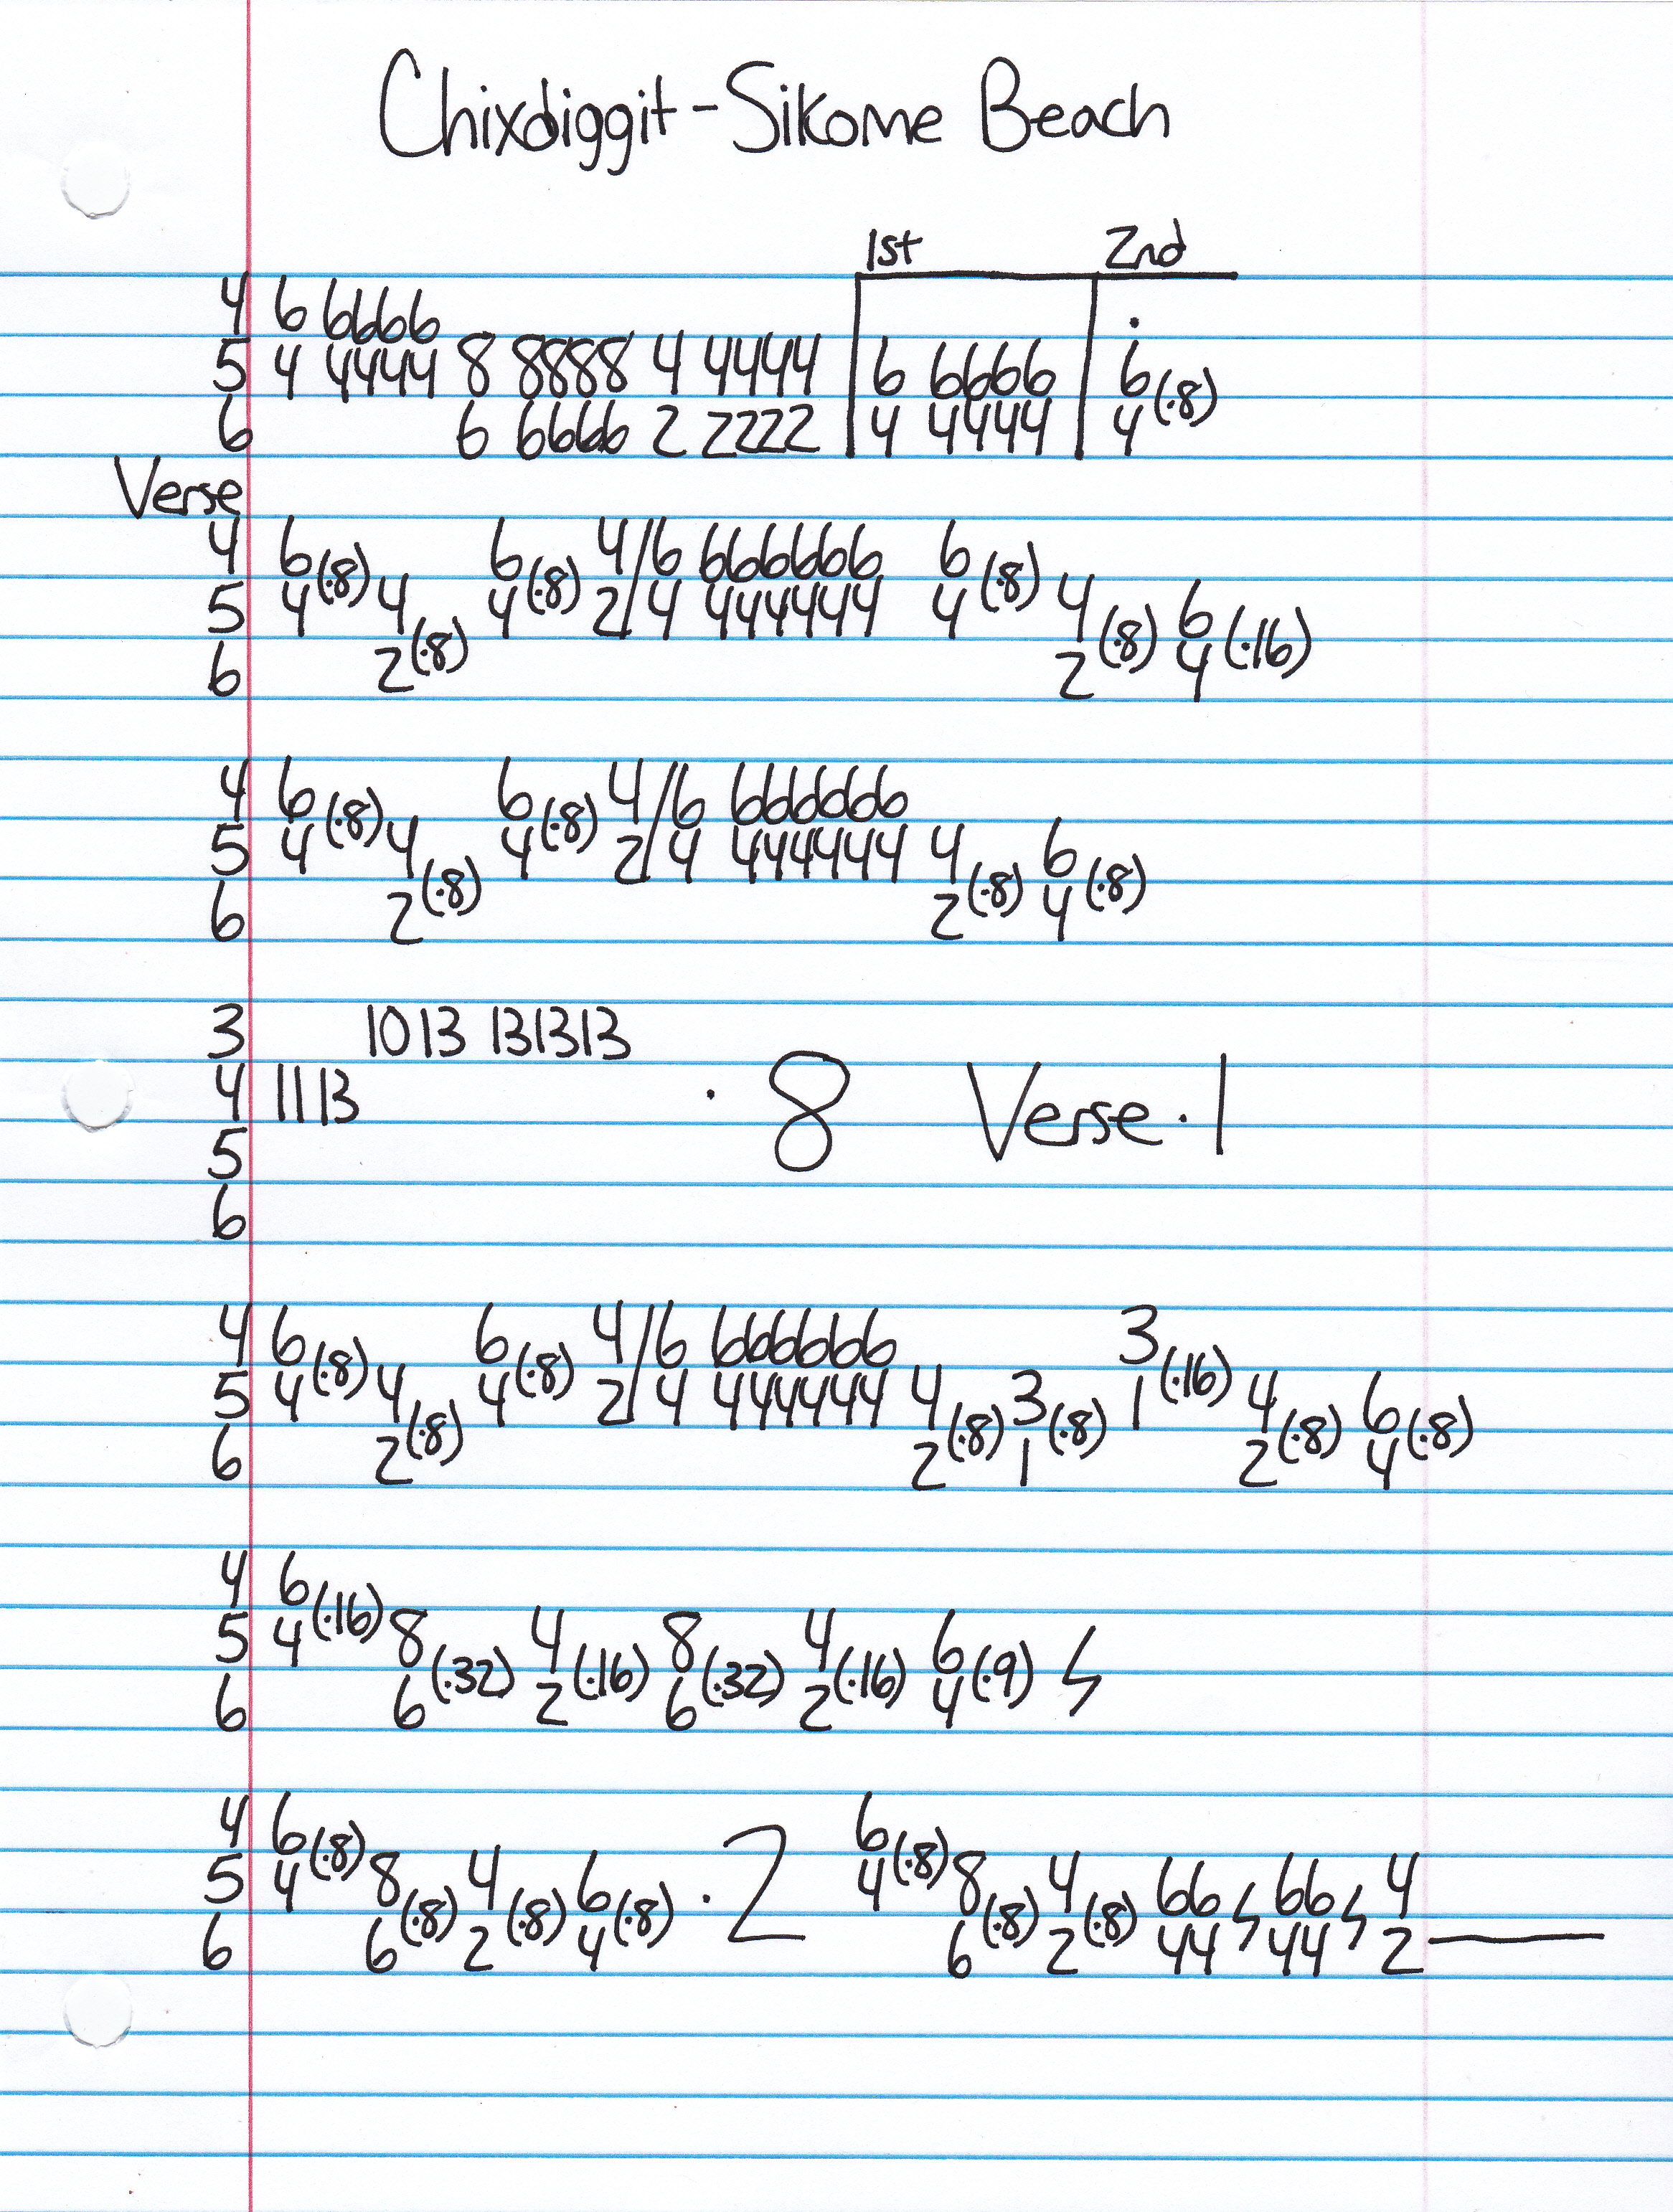 Chixdiggit-Sikome Beach
1st 2nd
4 6 6666 .
5 4 4444 8 8888 4 4444 6 6666 6(.8)
6 6 6666 2 2222 4 4444 4
Verse
4 6(.8) 6(.8) 4/6 666666 6(.8)
5 4 4 4 2/4 444444 4 4 6
6 2(.8) 2(.8) 4(.16)
4 6(.8) 6(.8) 4/6 666666
5 4 4 4 2/4 444444 4 6
6 2(.8) 2(.8) 4(.8)
3 10 13 131313
4 11 13 .8 Verse.1
5
6
4 6(.8) 6(.8) 4/6 666666 3
5 4 4 4 2/4 444444 4 3 1(.16) 4 6
6 2(.8) 2(.8) 1(.8) 2(.8) 4(.8)
4 6
5 4(.16) 8 4 8 4 6
6 6(.32) 2(.16) 6(.32) 2(.16) 4(.9) ϟ
4 6 6
5 4(.8) 8 4 6 .2 4(.8) 8 4 66 66 4
6 6(.8) 2(.8) 4(.8) 6(.8) 2(.8) 44 ϟ 44 ϟ 2——